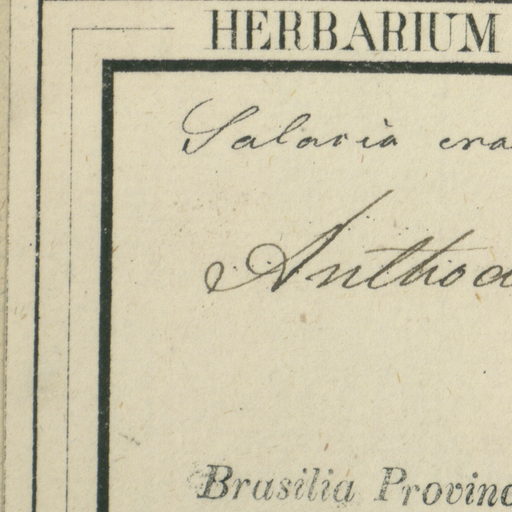 HERBARIUM
Salacia cra
Anthod
Brasilia Provinc